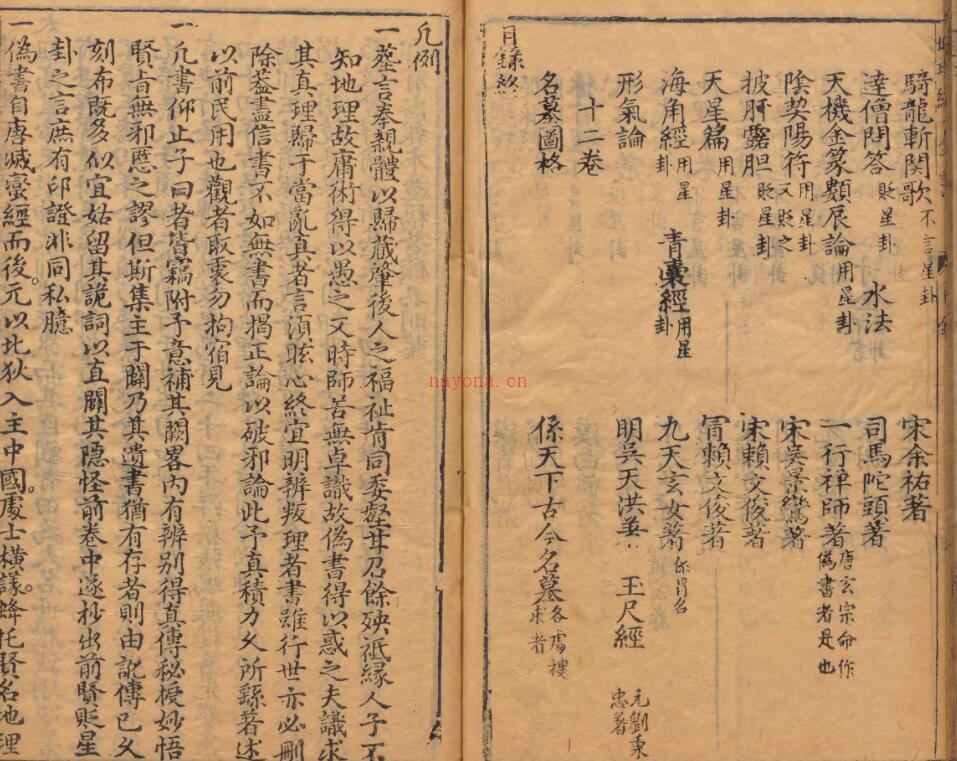 騎龍斬関歌 不言星卦 宋余祐著
達僧問答 貶星卦 水法 司馬陀頭著
天機金篆類辰論 用星卦 一行禅師著 唐玄宗命作偽書者是也
陰契陽符 用星卦又貶之 宋吳景鸞著
披肝露胆 貶星卦 宋賴文俊著
天星篇 用星卦 冐賴文俊著
海角經 用星卦 青囊經 用星卦 九天玄女著 係冐名
形氣論 明吳天洪著 玉尺經 元劉秉忠著
十二卷
名墓圖格 係天下古今名墓 各處樓求者
目錄終
凡例
一塟言奉親體以歸藏肇後人之福祉肯同委壑甘召餘殃祗縁人子不
知地理故庸術得以愚之又時師苦無卓識故偽書得以惑之夫識求
其真理歸于當亂真者言須眩心終宜明辨叛理者書雖行世亦必刪
除葢盡信書不如無書而揭正論以破邪論此予真積力久所繇著述
以前民用也觀者取衷勿拘宿見
一凢書仰止子曰者皆竊附予意補其闕畧內有辨别得真傳秘授妙悟
賢旨無邪慝之謬但斯集主于闢乃其遺書猶有存者則由訛傳已久
刻布既多似宜姑留其詭詞以直闢其隐怪前卷中遂抄出前賢貶星
卦之言庶有印證非同私臆
一偽書自唐滅蠻經而後元以北狄入主中國處士横議蜂托賢名地理
nayona.cn